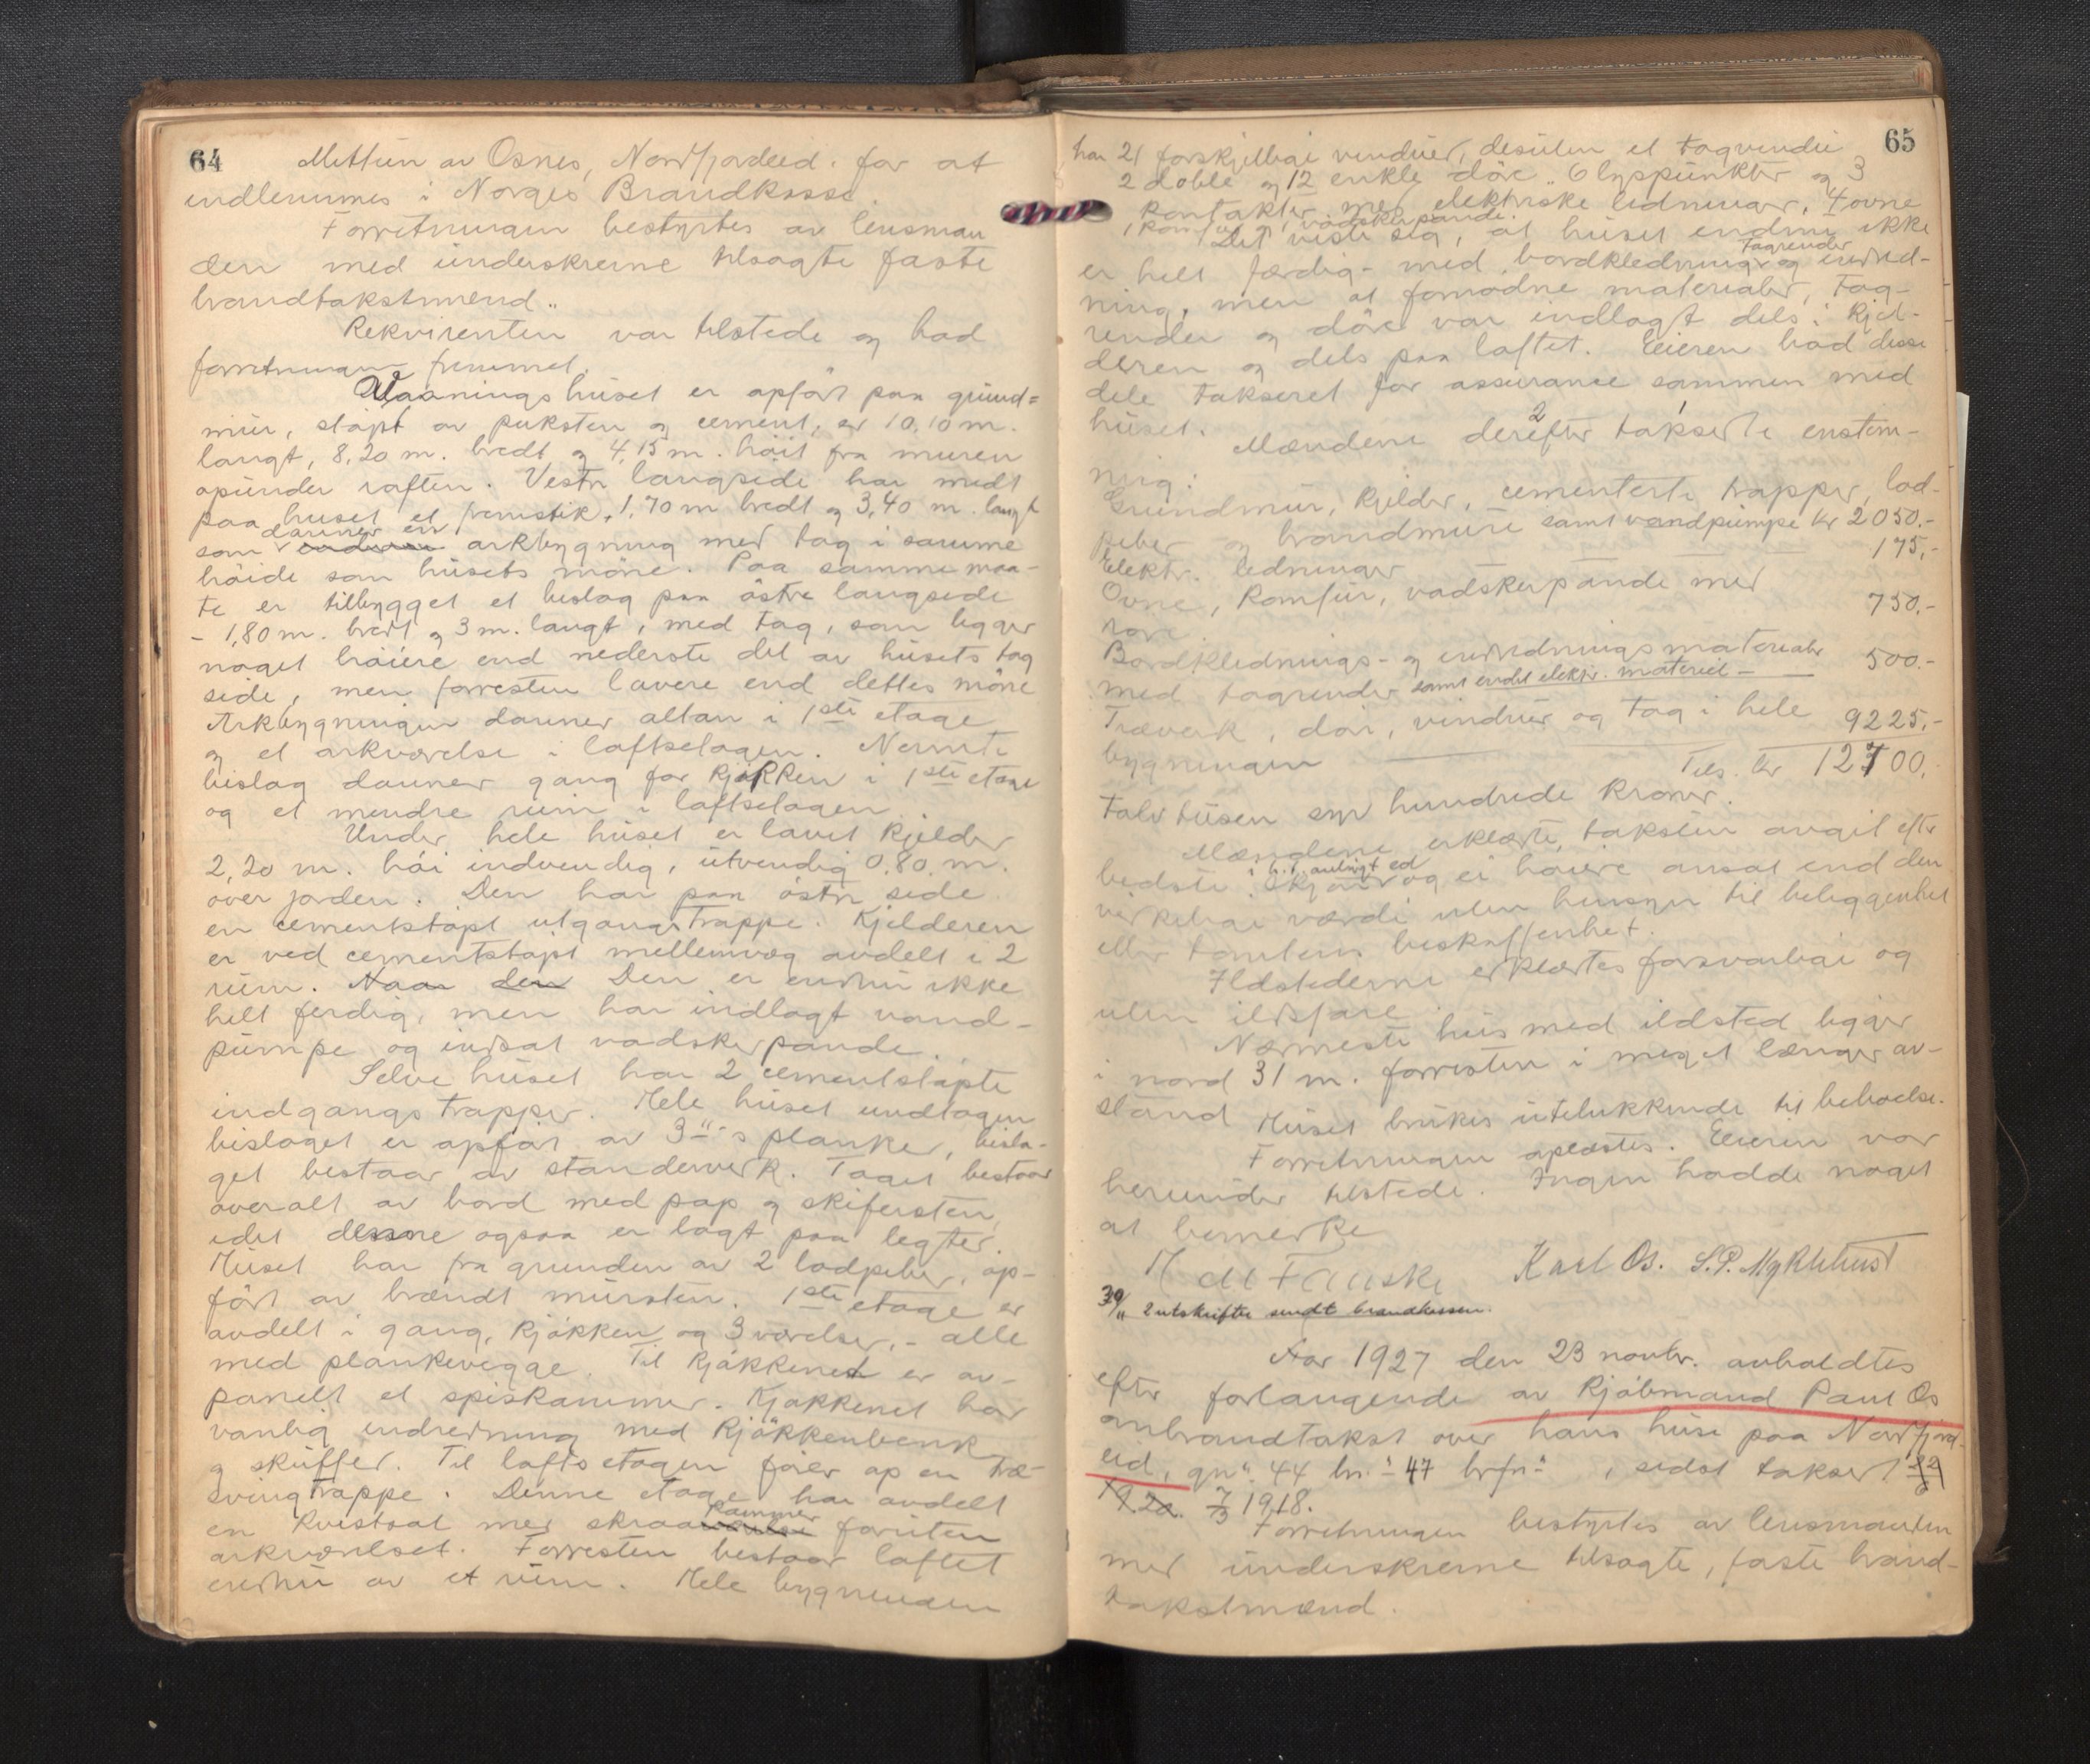 64
av Osnes, Nordfjordeid. for at
indlemmes i Norges Brandkasse
Forretningen bestyrtes av lensman
den med underskrevne tilsagte faste
brandtakstmend..
Rekvirenten var tilstede og bad
forretningen fremmet.
Vaaningshuset er opført paa grund=
mur, støpt av puksten og cement, er 10,10 m.
langt, 8,20 m. bredt og 4,15 m. høit fra muren
opunder raften. Vestre langside har midt
paa huset et fremstik, 1,70 m bredt og 3,40 m. langt
som danner en arkbygning med tag i samme
høide som husets møne. Paa samme maa-
te er tilbygget et bislag paa østre langside
- 1,80 m. bredt og 3 m. langt, med tag, som ligger
noget høiere end nederste del av husets tag
side, men forresten lavere end dettes møne
Arkbygningen danner altan i 1ste etage
og et arkværelse i loftsetagen. Nevnte
bislag danner gang for kjøkken i 1ste etage
og et mindre rum i loftsetagen.
Under hele huset er lavet kjelder
2,20 m. høi indvendig, utvendig 0,80 m.
over jorden. Den har paa østre side
en cementstøpt utgangstrappe. Kjelderen
er ved cementstøpt mellemvæg avdelt i 2
rum. Naar den Den er endnu ikke
helt ferdig, men har indlagt vand-
pumpe og indsat vadskepande.
Selve huset har 2 cementstøpte
indgangstrapper. Hele huset undtagen
bislaget er opført av 3"-s planke, bisla-
get bestaar av standerverk. Taget bestaar
overalt av bord med pap og skifersten,
idet dessne ogsaa er lagt paa legter.
Huset har fra grunden av 2 lodpiber, op-
ført av brændt mursten. 1ste etage er
avdelt i gang, kjøkken og 3 værelser, - alle
med plankevegge. Til kjøkkenet er av-
panelt et spiskammer. Kjøkkenet har
vanlig indredning med kjøkkenbenk
og skuffer. Til loftsetagen fører op en træ-
svingtrappe. Denne etage har avdelt
en kvistsal med skraakammer foruten
arkværelset. Forresten bestaar loftet
endnu av et rum. Hele bygningen
65
har 21 forskjellige vinduer, desuten et tagvindu
2 doble og 12 enkle døre. 6 lyspunkter og 3
kontakter med elektriske ledninger, 4 ovne
1 komfur, vadskepande.
Det viste sig, at huset endnu ikke
er helt færdig - med bordkledning, tagrender og indred-
ning, men at fornødne materialer, tag-
render og døre var indlagt dels i kjel-
deren og dels paa loftet. Eieren bad disse
dele takseret for assurance sammen med
huset.
Mændene derefter takserte enstem-
mig:
Grundmur, kjelder, cementerte trapper, lod-
piber og brandmure samt vandpumpe kr 2050.-
Elektr. ledninger 175,-
Ovne, komfur, vadskepande med
rør 750.-
Bordklednings- og indredningsmaterialer
med tagrender samt endel elektr. materiel - 500.-
Træverk, dør, vinduer og tag i hele
bygningen 9225.-
Tils. kr 12700,
tolv tusen syv hundrede kroner.
Mændene erklærte taksten avgit efter
bedste skjøn i h.t. avlagt ed og ei høiere ansat end den
virkelige værdi uten hensyn til beliggenhet
eller tomtens beskaffenhet.
Ildstederne erklærtes forsvarlige og
uten ildsfare.
Nærmeste hus med ildsted ligger
i nord 31 m. forresten i meget længer av-
stand
Huset brukes utelukkende til beboelse.
Forretningen oplæstes. Eieren var
herunder tilstede. Ingen hadde noget
at bemerke
Fauske Karl Os. S.P. Myklebust
30/11 2 utskrifter sendt brandkassen.
Aar 1927 den 23 novbr. avholdtes
efter forlangende av kjøbmand Paul Os
ombrandtakst over hans huse paa Nordfjord-
eid, gn". 44 bn."- 47 brfn" , sidst taksert
7/3 1918.
Forretningen bestyrtes av lensmanden
med underskrevne tilsagte, faste brand-
takstmænd.